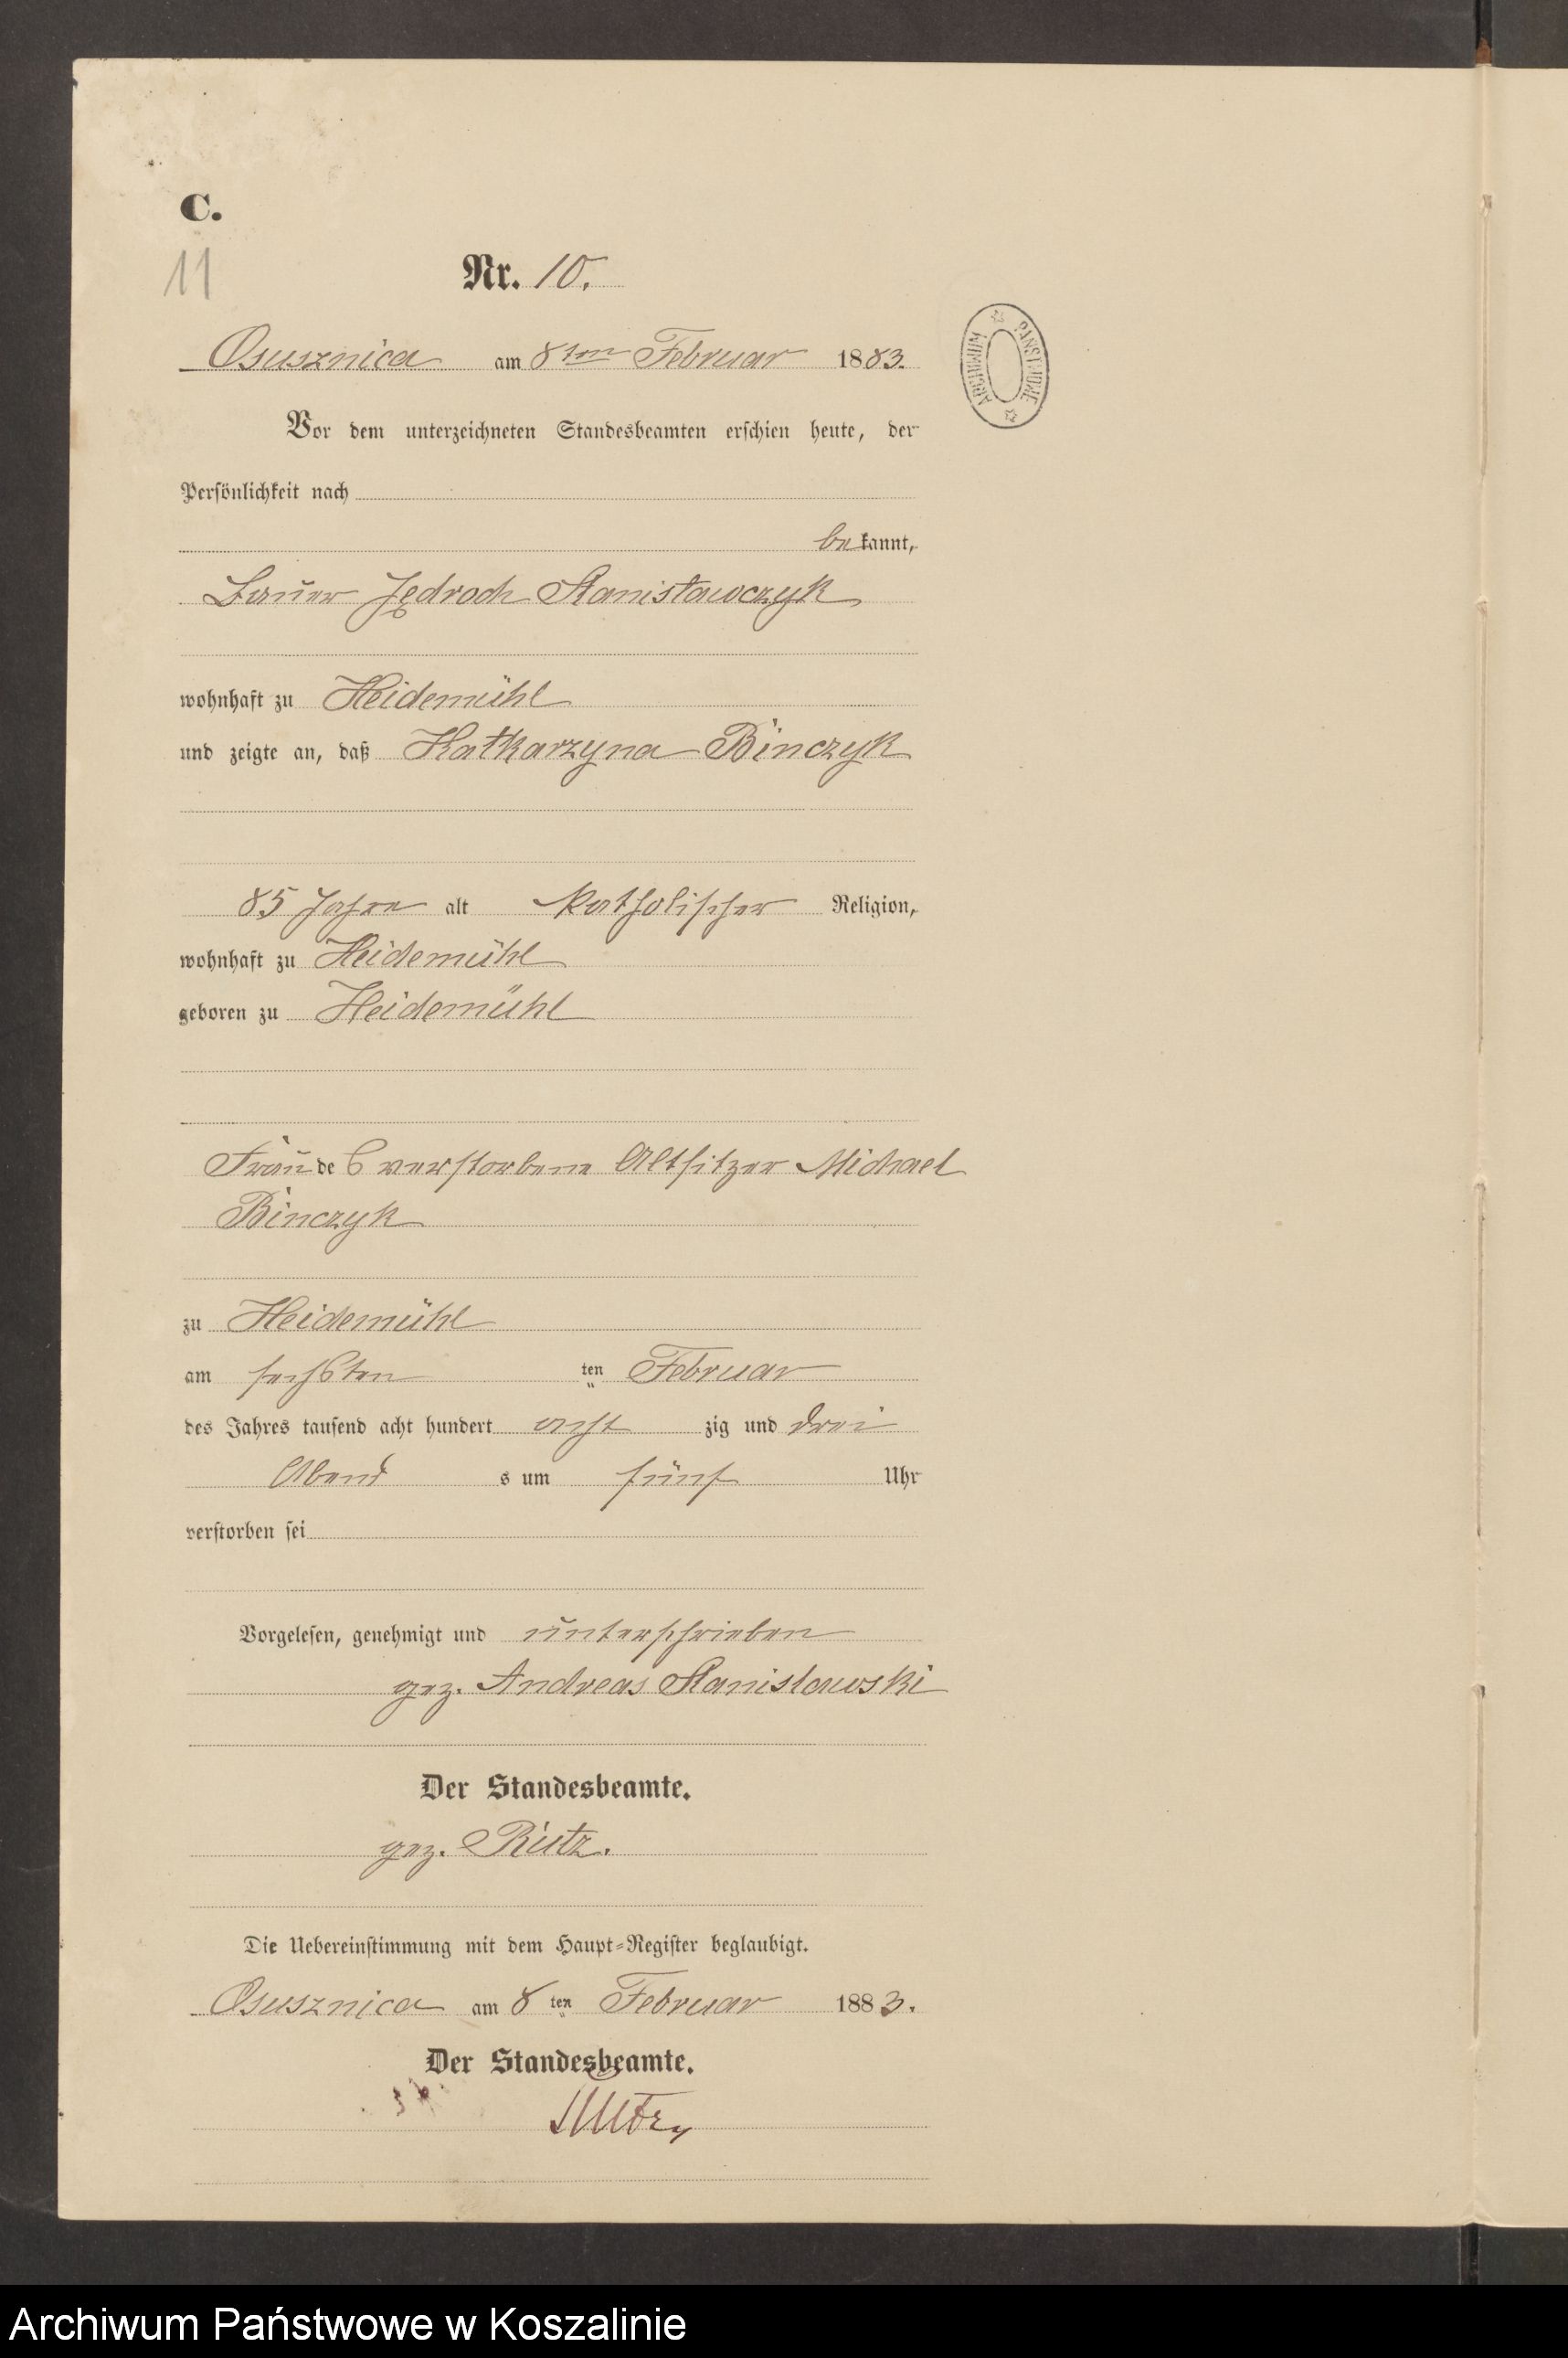 C.
11
Nr. 10.
Osusznica am 8ten Februar 1883.
ARCHIWUM PAŃSTWOWE
Vor dem unterzeichneten Standesbeamten erschien heute, der
Persönlichkeit nach
bekannt,
Bauer Jędroch Stanisławczyk
wohnhaft zu Heidemühl
und zeigte an, daß Katharzyna Binczyk
85 Jahre alt katholischer Religion,
wohnhaft zu Heidemühl
geboren zu Heidemühl
Frau des verstorbene Altsitzer Michael
Binczyk
zu Heidemühl
am sechsten ten Februar
des Jahres tausend acht hundert acht zig und drei
Abend s um fünf Uhr
verstorben sei
Vorgelesen, genehmigt und unterschrieben
gez. Andreas Stanislawski
Der Standesbeamte.
gez. Rutz.
Die Uebereinstimmung mit dem Haupt-Register beglaubigt.
Osusznica am 8 ten Februar 1883.
Der Standesbeamte.
Rutz
Archiwum Państwowe w Koszalinie